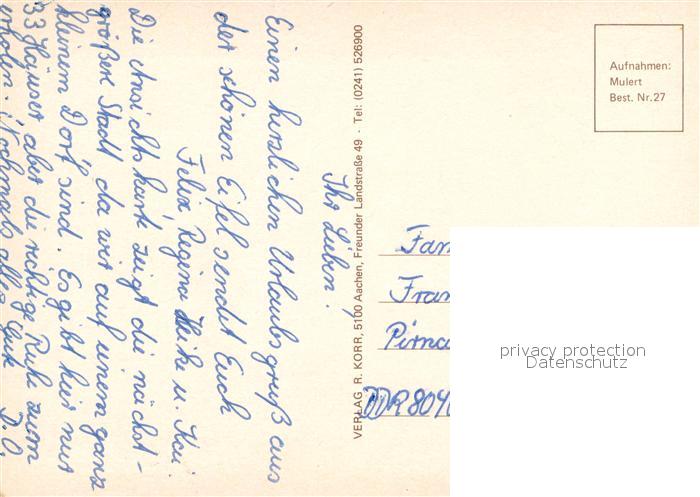 Ihr Lieben!
Einen herzlichen Urlaubsgruß aus
der schönen Eifel sendet Euch
Felix, Regina Heike u. Kai
Die Ansichtskarte zeigt die nächst-
größere Stadt da wir auf einem ganz
kleinem Dorf sind. Es gibt hier nur
33 Häuser aber die richtige Ruhe zum
erholen. Nochmals alles Gute D.O.
VERLAG R. KORR, 5100 Aachen, Freunder Landstraße 49 · Tel: (0241) 526900
Aufnahmen:
Mulert
Best. Nr. 27
Fam
Fran
Pirna
DDR 80
privacy protection
Datenschutz